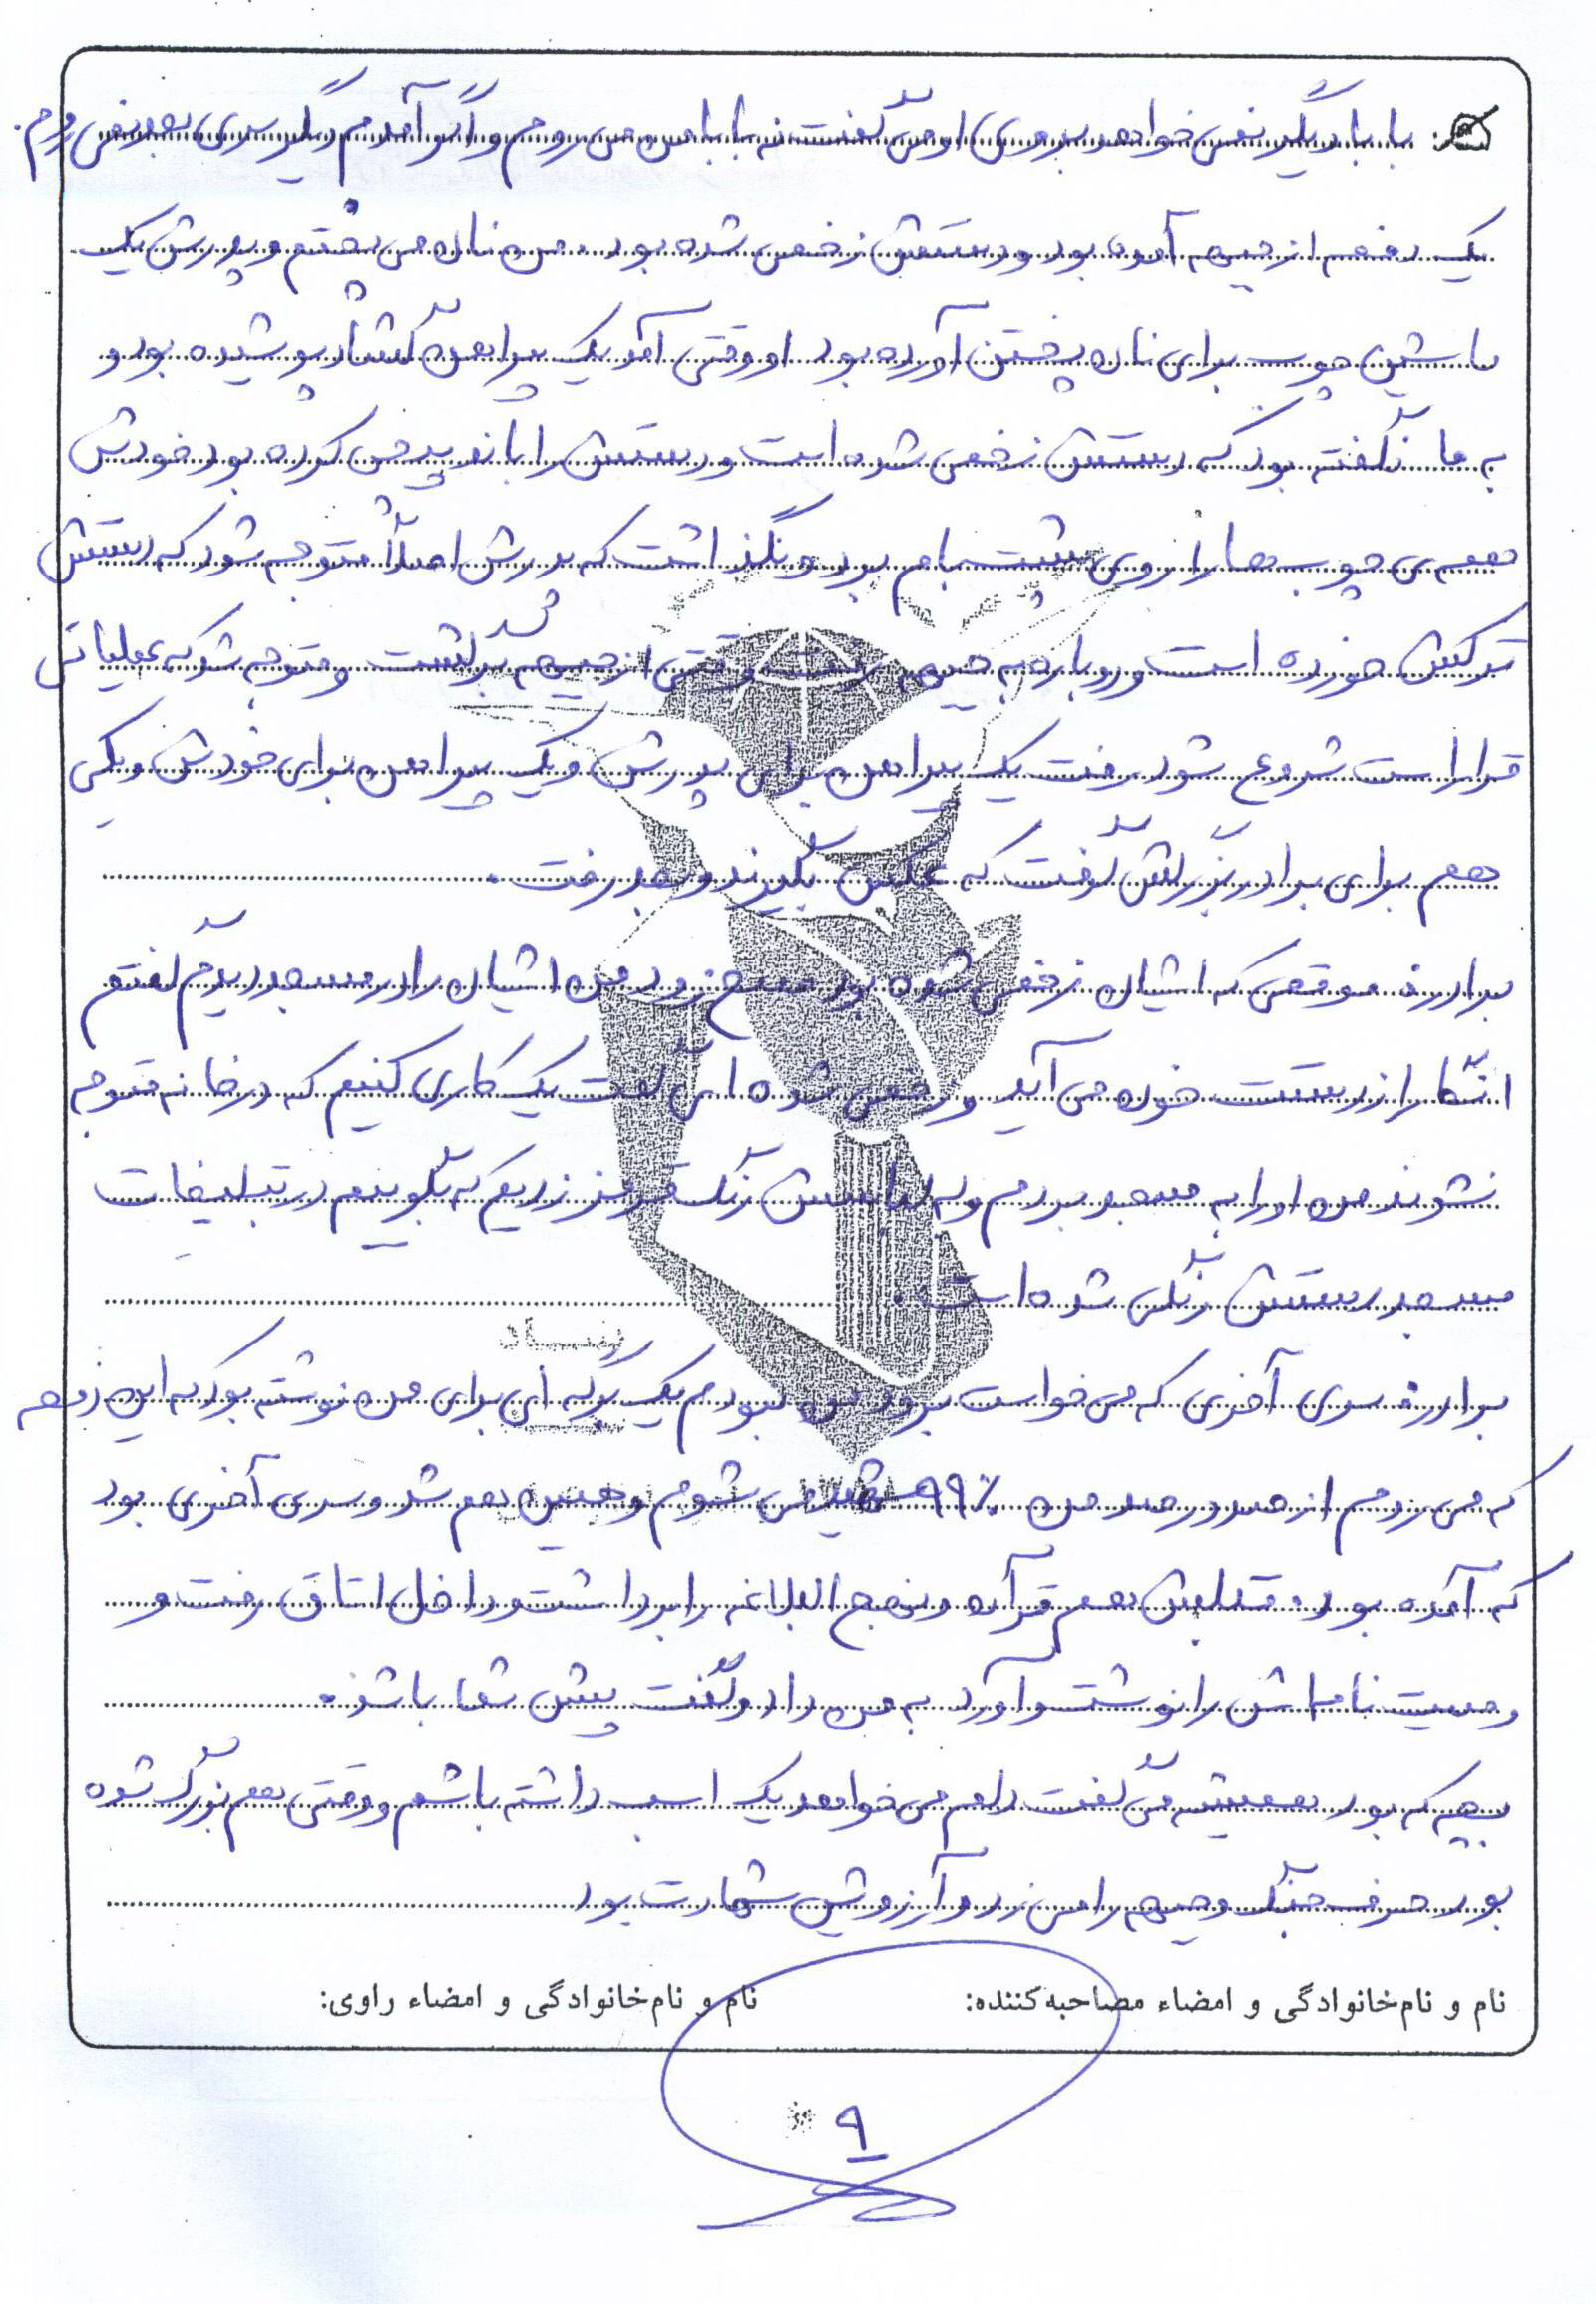 بابا دیگر نمی خواهد بروی او می گفت نه بابا من می روم و اگر آمدم دیگر سری بعد نمی روم.
یک دفعه از جبهه آمده بود و دستش زخمی شده بود. من نان می پختم و پدرش یک
ماشین چوب برای نان پختن آورده بود او وقتی آمد یک پیراهن گشاد پوشیده بود و
به ما نگفته بود که دستش زخمی شده است و دستش را باند پیچی کرده بود خودش
همه ی چوب ها را روی پشت بام برد و نگذاشت که پدرش اصلاً متوجه شود که دستش
ترکش خورده است و دوباره به جبهه رفت وقتی از جبهه برگشت و متوجه شد که عملیاتی
قرار است شروع شود رفت یک پیراهن برای پدرش و یک پیراهن برای خودش و یکی
هم برای برادر بزرگش گرفت که عکس بگیرند و بعد رفت.
برادر: موقعی که ایشان زخمی شده بود صبح زود من ایشان را در مسجد دیدم گفتم
انگار از دستت خون می آید و زخمی شده ای گفت یک کاری کنیم که در خانه متوجه
نشوند من او را به مسجد بردم و به لباسش رنگ قرمز زدیم که بگوییم در تبلیغات
مسجد دستش رنگی شده است.
برادر: سری آخری که می خواست برود من نبودم یک برگه ای برای من نوشته بود که این دفعه
که می روم از صد در صد من ۹۹٪ شهید می شوم و همین هم شد و سری آخری بود
که آمده بود. قبلش هم قرآن و نهج البلاغه را برداشت و داخل اتاق رفت و
وصیت نامه اش را نوشت و آورد به من داد و گفت پیش شما باشد.
بچه که بود همیشه می گفت دلم می خواهد یک اسب داشته باشم و وقتی هم بزرگ شده
بود حرف جنگ و جبهه را می زد و آرزویش شهادت بود
نام و نام‌خانوادگی و امضاء مصاحبه‌کننده: نام و نام‌خانوادگی و امضاء راوی:
۹